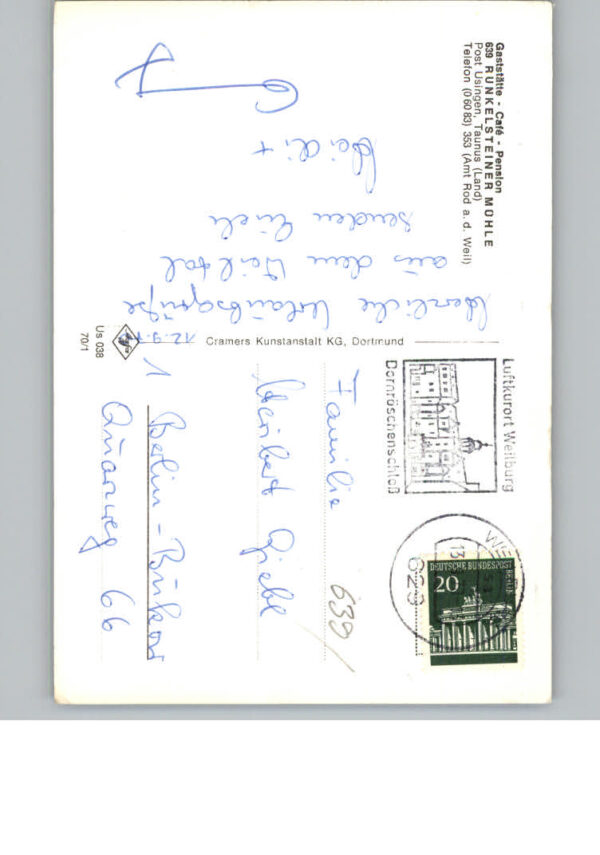 Gaststätte - Café - Pension
639 RUNKELSTEINER MÜHLE
Post Usingen, Taunus (Land)
Telefon (0 60 83) 353 (Amt Rod a. d. Weil)
Herzliche Urlaubsgrüße
aus dem Weiltal
senden Euch
Heidi +
Us 038
70/1
Cramers Kunstanstalt KG, Dortmund
Luftkurort Weilburg
Dornröschenschloß
629
DEUTSCHE BUNDESPOST
BERLIN
20
Familie
Herbert Giebl
1 Berlin-Bukow
Quarzweg 66
639/